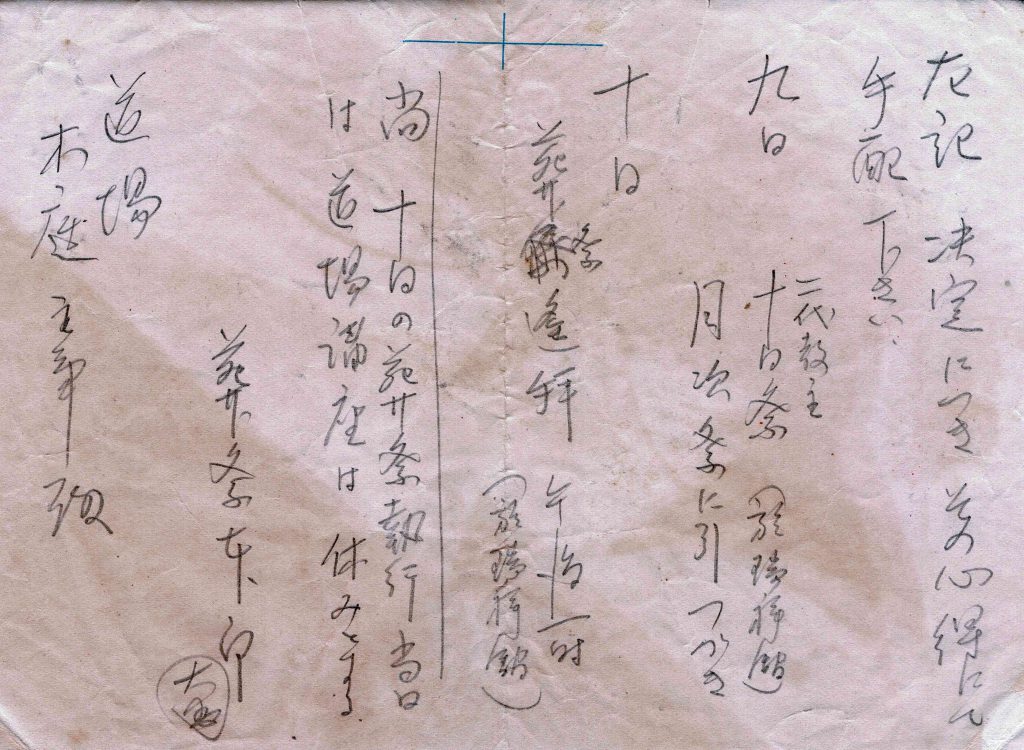 左記 決定につき お心得にて
手配下さい
九日
二代教主
十日祭 (於瑞祥館)
月次祭に引つゞき
十日
葬祭遙拝 午后一時
(於瑞祥館)
尚 十日の葬祭執行当日
は道場講座は休みとする
葬祭本部
道場
木庭主事殿